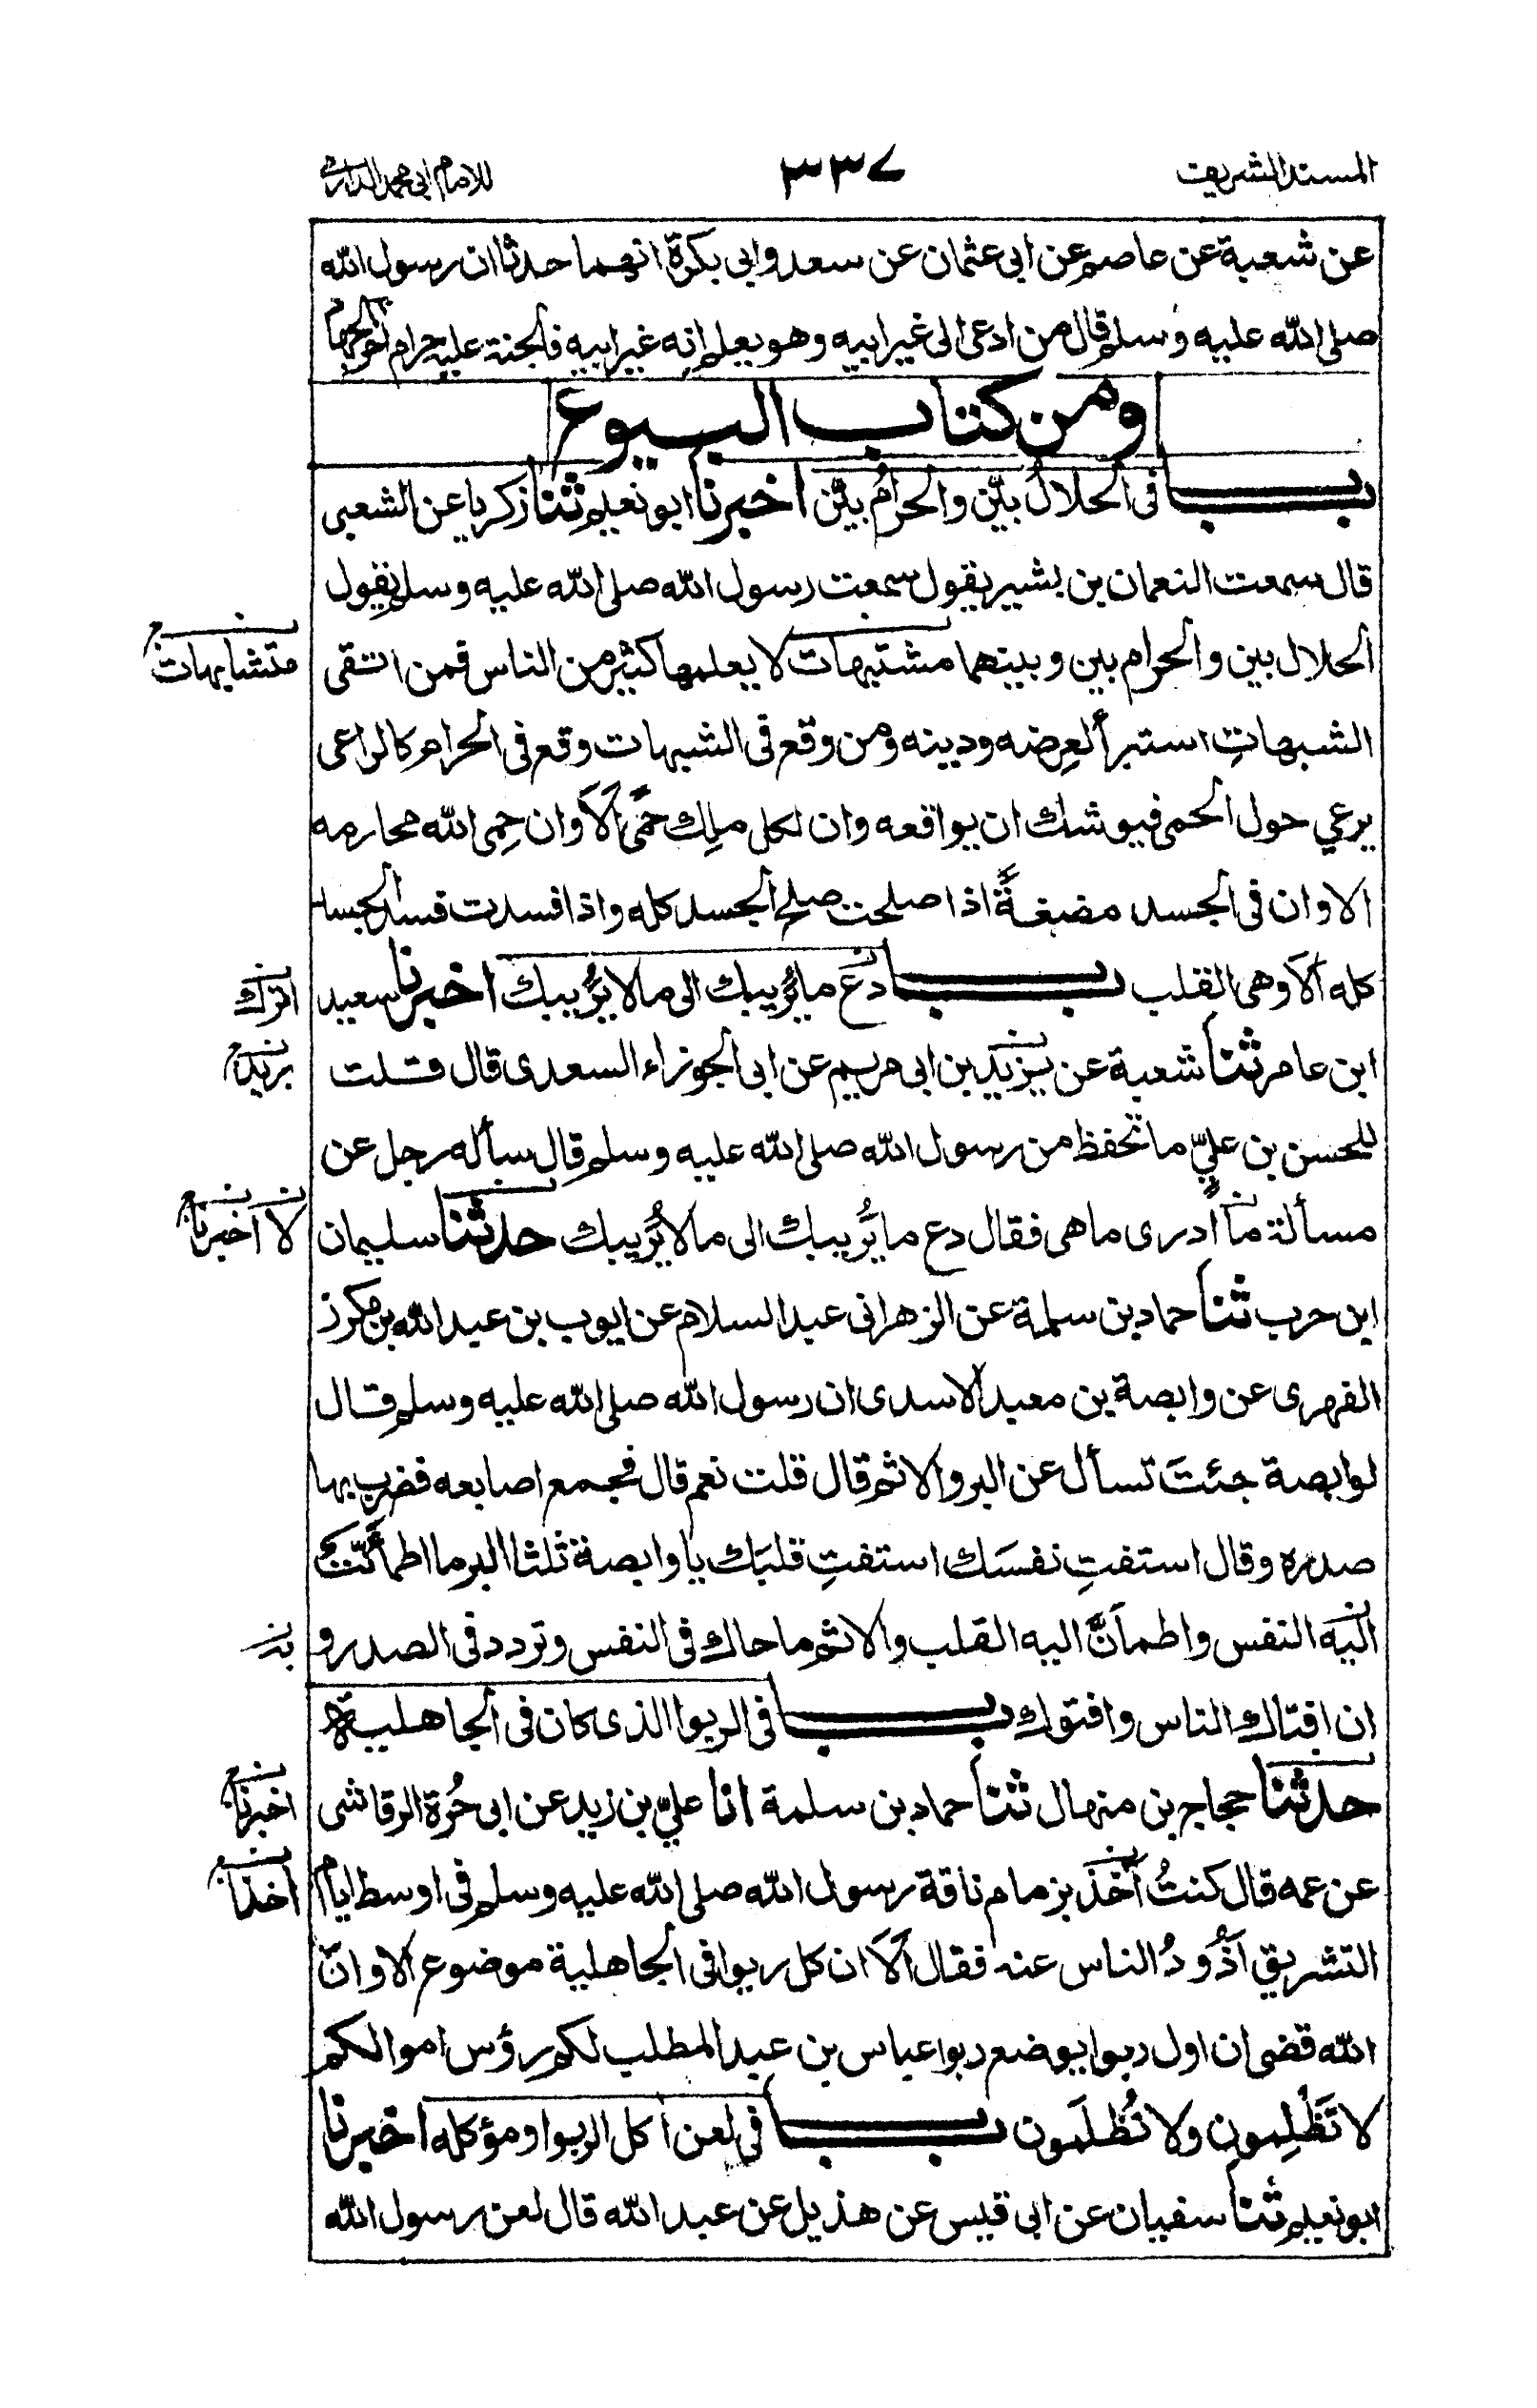 المسند الشريف
٣٣٧
للامام ابى محمد الدارمى
عن شعبة عن عاصم عن ابى عثمان عن سعد و ابى بكرة انهما حدثا ان رسول الله
صلى الله عليه وسلم قال من ادعى الى غير ابيه وهو يعلم انه غير ابيه فالجنة عليه حرام
ومن كتاب البيوع
باب فى الحلالُ بيّن والحرامُ بيّن اخبرنا ابو نعيم ثنا زكريا عن الشعبى
قال سمعت النعمان بن بشير يقول سمعت رسول الله صلى الله عليه وسلم يقول
الحلال بين والحرام بين وبينهما مشتبهات لا يعلمها كثير من الناس فمن اتقى
متشابهات
الشبهاتِ استبرأ لعِرضه ودينه ومن وقع فى الشبهات وقع فى الحرام كالراعى
يرعي حول الحمى فيوشك ان يواقعه وان لكل ملِك حمًى اَلَا وان حِمى الله محارمه
الا وان فى الجسد مضغةً اذا صلحت صلح الجسد كله واذا فسدت فسد الجسد
كله اَلا وهى القلب باب دَع ما يُريبك الى ما لا يُريبك اخبرنا سعيد
اترك
ابن عامر ثنا شعبة عن يزيد بن ابى مريم عن ابى الجوزاء السعدى قال قلت
بريد
للحسن بن عليّ ما تحفظ من رسول الله صلى الله عليه وسلم قال سأله رجل عن
مسألة ما ادرى ما هى فقال دع ما يُريبك الى ما لا يُريبك حدثنا سليمان
لا اخبرنا
ابن حرب ثنا حماد بن سلمة عن الزهرانى عبد السلام عن ايوب بن عبد الله بن مكرز
الفهرى عن وابصة بن معبد الاسدى ان رسول الله صلى الله عليه وسلم قال
لوابصة جئتَ تسأل عن البر والاثم قال قلت نعم قال فجمع اصابعه فضرب بها
صدره وقال استفتِ نفسَك استفتِ قلبَك يا وابصة ثلثا البر ما اطمأنّت
اليه النفس واطمأنّ اليه القلب والاثم ما حاك فى النفس وتردد فى الصدر و
به
ان افتاك الناس وافتوك باب فى الربوا الذى كان فى الجاهلية
حدثنا حجاج بن منهال ثنا حماد بن سلمة انا عليّ بن زيد عن ابى حُرّة الرقاشى
اخبرنا
عن عمه قال كنتُ آخُذ بزمام ناقة رسول الله صلى الله عليه وسلم فى اوسط ايام
آخذا
التشريق اَذُودُ الناس عنه فقال اَلَا ان كل ربوا فى الجاهلية موضوع الا وانّ
الله قضى ان اول ربوا يوضع ربوا عباس بن عبد المطلب لكم رؤس اموالكم
لا تَظْلِمون ولا تُظْلَمون باب فى لعن آكل الربوا ومؤكله اخبرنا
ابو نعيم ثنا سفيان عن ابى قيس عن هذيل عن عبد الله قال لعن رسول الله